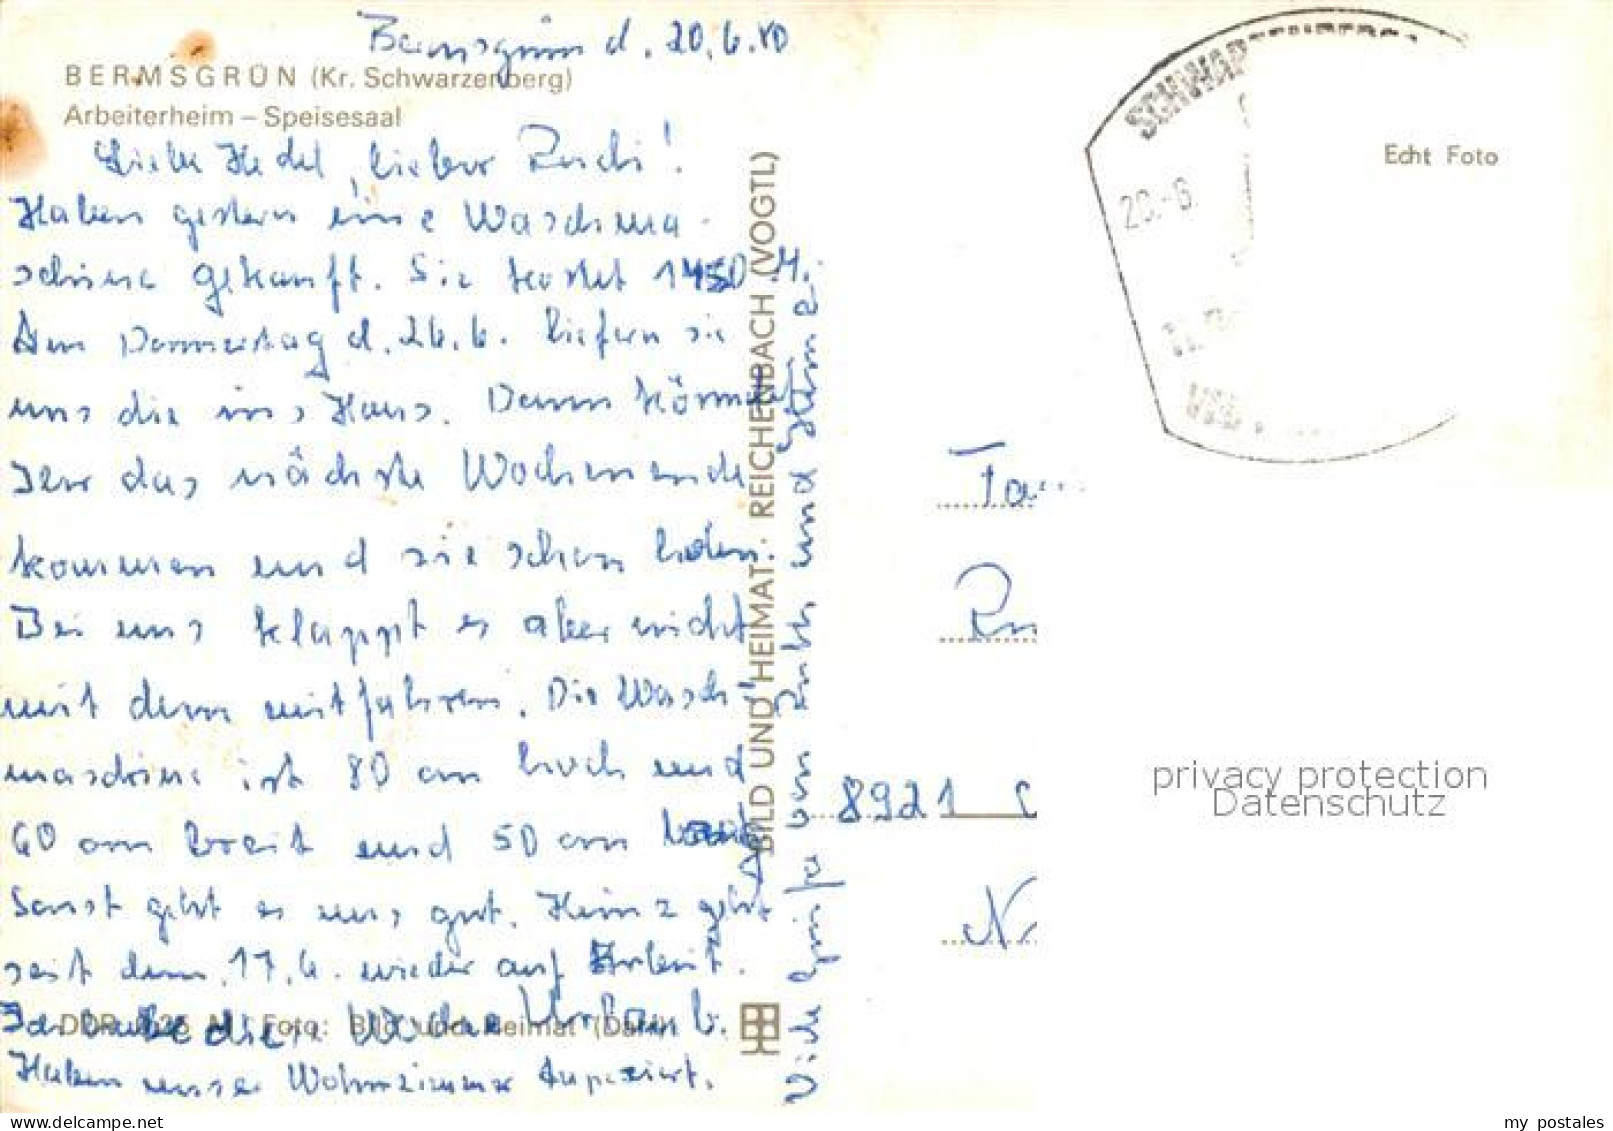 Bermsgrün d. 20.6.80
BERMSGRÜN (Kr. Schwarzenberg)
Arbeiterheim – Speisesaal
Liebe Hedel, lieber Rudi!
Haben gestern eine Waschma-
schine gekauft. Sie kostet 1450 M.
Am Donnerstag d. 26.6. liefern sie
uns die ins Haus. Dann könnt
Ihr das nächste Wochenende
kommen und sie schon holen.
Bei uns klappt es aber nicht
mit dem mitfahren. Die Wasch-
maschine ist 80 cm hoch und
60 cm breit und 50 cm lang
Sonst geht es uns gut. Heinz geht
seit dem 17.6. wieder auf Arbeit.
Ich habe diese Woche Urlaub.
Haben unser Wohnzimmer tapeziert.
Viele Grüße von Ruth und Heinz.
BILD UND HEIMAT · REICHENBACH (VOGTL)
Foto: Bild und Heimat
Echt Foto
20.-6.
8921
privacy protection
Datenschutz
www.delcampe.net
my postales